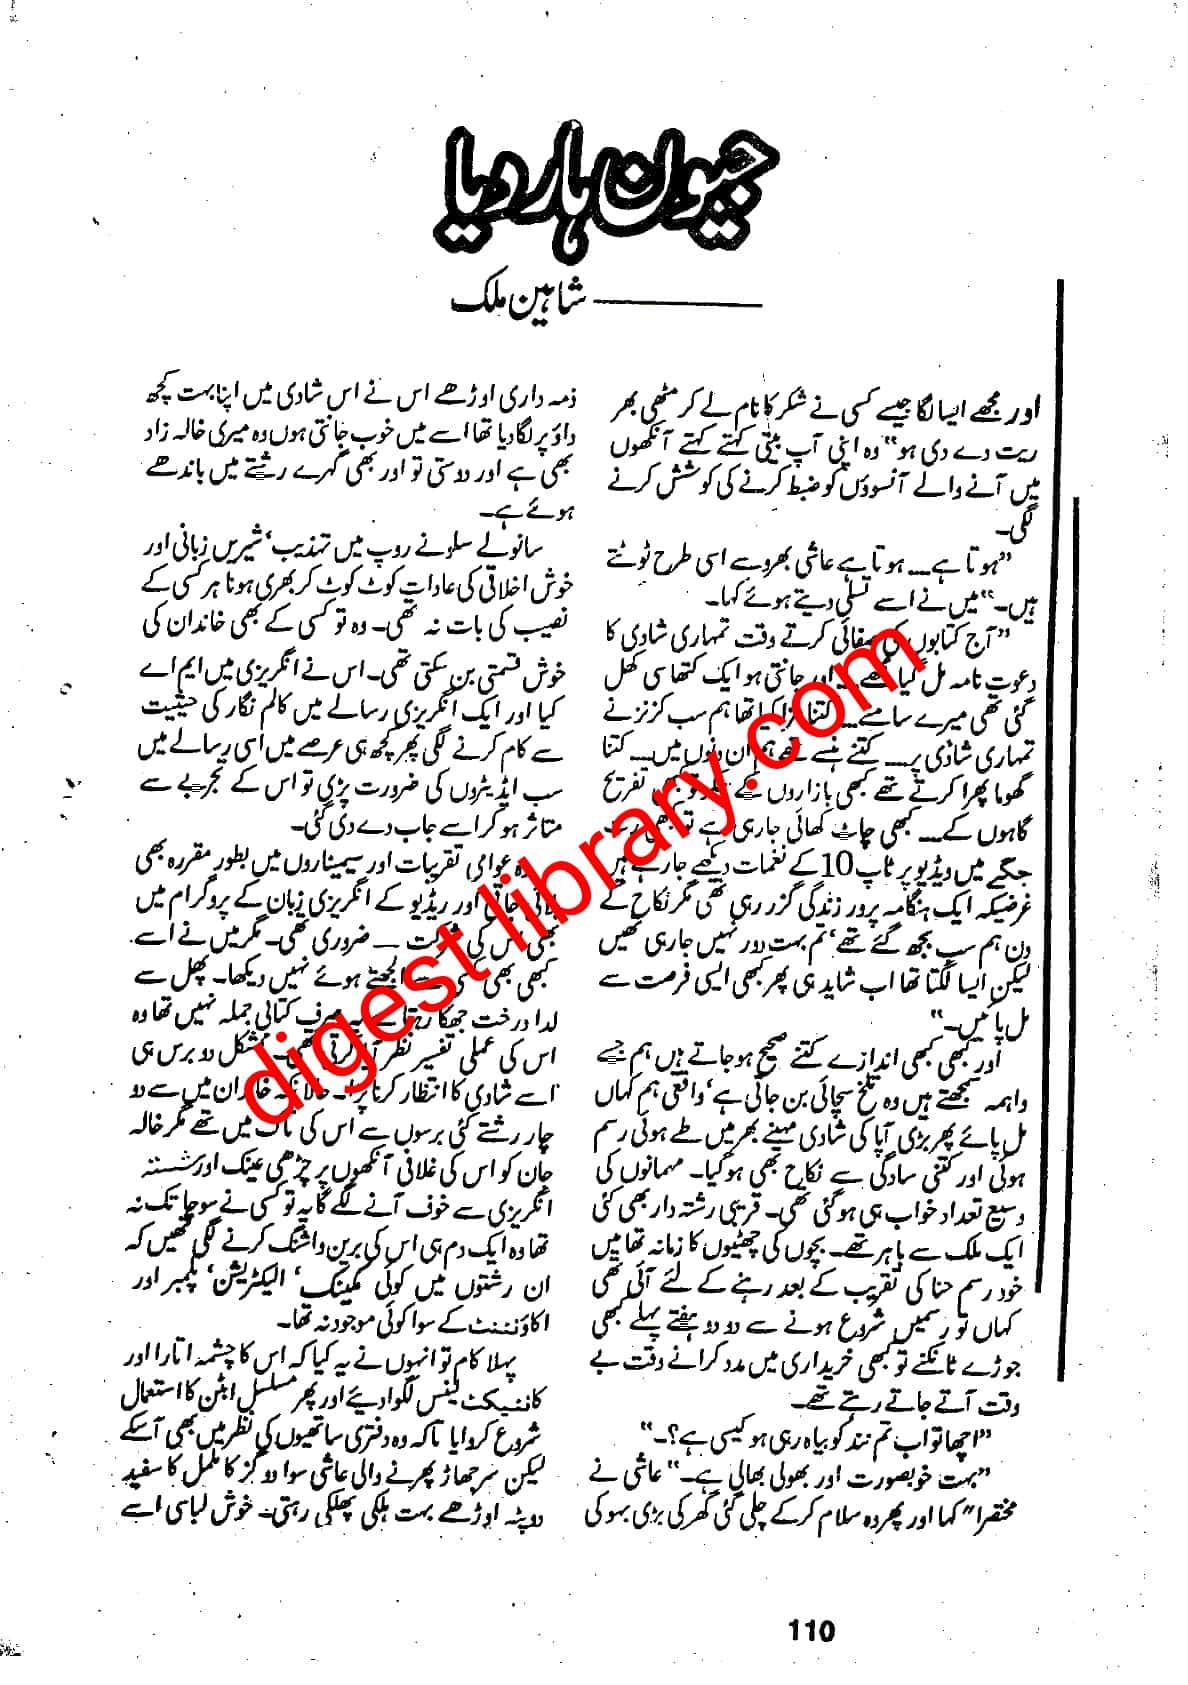 جیون ہار دیا
شاہین ملک
اور مجھے ایسا لگا جیسے کسی نے شکر کا نام لے کر مٹھی بھر
ریت دے دی ہو" وہ اپنی آپ بیتی کہتے کہتے آنکھوں
میں آنے والے آنسوؤں کو ضبط کرنے کی کوشش کرنے
لگی۔
"ہوتا ہے۔۔۔ ہوتا ہے عاشی بھروسے اسی طرح ٹوٹتے
ہیں۔" میں نے اسے تسلی دیتے ہوئے کہا۔
"آج کتابوں کی صفائی کرتے وقت تمہاری شادی کا
دعوت نامہ مل گیا مجھے۔۔۔ اور جانتی ہو ایک کتھا سی کھل
گئی تھی میرے سامنے۔۔۔ کتنا مزا کیا تھا ہم سب کزنز نے
تمہاری شادی پر۔۔۔ کتنے ہنسے تھے ہم ان دنوں میں۔۔۔ کتنا
گھوما پھرا کرتے تھے کبھی بازاروں کے چکر تو کبھی تفریح
گاہوں کے۔۔۔ کبھی چاٹ کھائی جا رہی ہے تو کبھی رت
جگے میں ویڈیو پر ٹاپ 10 کے نغمات دیکھے جا رہے ہیں
غرضیکہ ایک ہنگامہ پرور زندگی گزر رہی تھی مگر نکاح کے
دن ہم سب بجھ گئے تھے' تم بہت دور نہیں جا رہی تھیں
لیکن ایسا لگتا تھا اب شاید ہی پھر کبھی ایسی فرصت سے
مل پائیں۔"
اور کبھی کبھی اندازے کتنے صحیح ہو جاتے ہیں ہم جسے
واہمہ سمجھتے ہیں وہ تلخ سچائی بن جاتی ہے' واقعی ہم کہاں
مل پائے پھر بڑی آپا کی شادی مہینے بھر میں طے ہوئی رسم
ہوئی اور کتنی سادگی سے نکاح بھی ہو گیا۔ مہمانوں کی
وسیع تعداد خواب ہی ہو گئی تھی۔ قریبی رشتہ دار بھی کئی
ایک ملک سے باہر تھے۔ بچوں کی چھٹیوں کا زمانہ تھا میں
خود رسم حنا کی تقریب کے بعد رہنے کے لئے آئی تھی
کہاں تو رسمیں شروع ہونے سے دو دو ہفتے پہلے کبھی
جوڑے ٹانکنے تو کبھی خریداری میں مدد کرانے وقت بے
وقت آتے جاتے رہتے تھے۔
"اچھا تو اب تم نند کو بیاہ رہی ہو کیسی ہے؟۔"
"بہت خوبصورت اور بھولی بھالی ہے۔" عاشی نے
مختصراً کہا اور پھر وہ سلام کر کے چلی گئی گھر کی بڑی بہو کی
ذمہ داری اوڑھے اس نے اس شادی میں اپنا بہت کچھ
داؤ پر لگا دیا تھا اسے میں خوب جانتی ہوں وہ میری خالہ زاد
بھی ہے اور دوستی تو اور بھی گہرے رشتے میں باندھے
ہوئے ہے۔
سانولے سلونے روپ میں تہذیب' شیریں زبانی اور
خوش اخلاقی کی عادات کوٹ کوٹ کر بھری ہونا ہر کسی کے
نصیب کی بات نہ تھی۔ وہ تو کسی کے بھی خاندان کی
خوش قسمتی بن سکتی تھی۔ اس نے انگریزی میں ایم اے
کیا اور ایک انگریزی رسالے میں کالم نگار کی حیثیت
سے کام کرنے لگی پھر کچھ ہی عرصے میں اسی رسالے میں
سب ایڈیٹروں کی ضرورت پڑی تو اس کے تجربے سے
متاثر ہو کر اسے جاب دے دی گئی۔
وہ عوامی تقریبات اور سیمیناروں میں بطور مقررہ بھی
بلائی جاتی اور ریڈیو کے انگریزی زبان کے پروگرام میں
بھی اس کی شرکت ۔۔ ضروری تھی۔ مگر میں نے اسے
کبھی بھی کسی سے الجھتے ہوئے نہیں دیکھا۔ پھل سے
لدا درخت جھکا رہتا ہے یہ صرف کتابی جملہ نہیں تھا وہ
اس کی عملی تفسیر نظر آیا کرتی تھی۔ مشکل دو برس ہی
اسے شادی کا انتظار کرنا پڑا۔ حالانکہ خاندان میں سے دو
چار رشتے کئی برسوں سے اس کی تاک میں تھے مگر خالہ
جان کو اس کی غلافی آنکھوں پر چڑھی عینک اور شستہ
انگریزی سے خوف آنے لگے گا یہ تو کسی نے سوچا تک نہ
تھا وہ ایک دم ہی اس کی برین واشنگ کرنے لگی تھیں کہ
ان رشتوں میں کوئی مکینک' الیکٹریشن' پلمبر اور
اکاؤنٹنٹ کے سوا کوئی موجود نہ تھا۔
پہلا کام تو انہوں نے یہ کیا کہ اس کا چشمہ اتارا اور
کانٹیکٹ لینس لگوا دیئے اور پھر مسلسل ابٹن کا استعمال
شروع کروایا تاکہ وہ دفتری ساتھیوں کی نظر میں بھی آسکے
لیکن سر جھاڑ پھرنے والی عاشی سوا دو گز کا ململ کا سفید
دوپٹہ اوڑھے بہت ہلکی پھلکی رہتی۔ خوش لباسی اسے
110
digest library.com